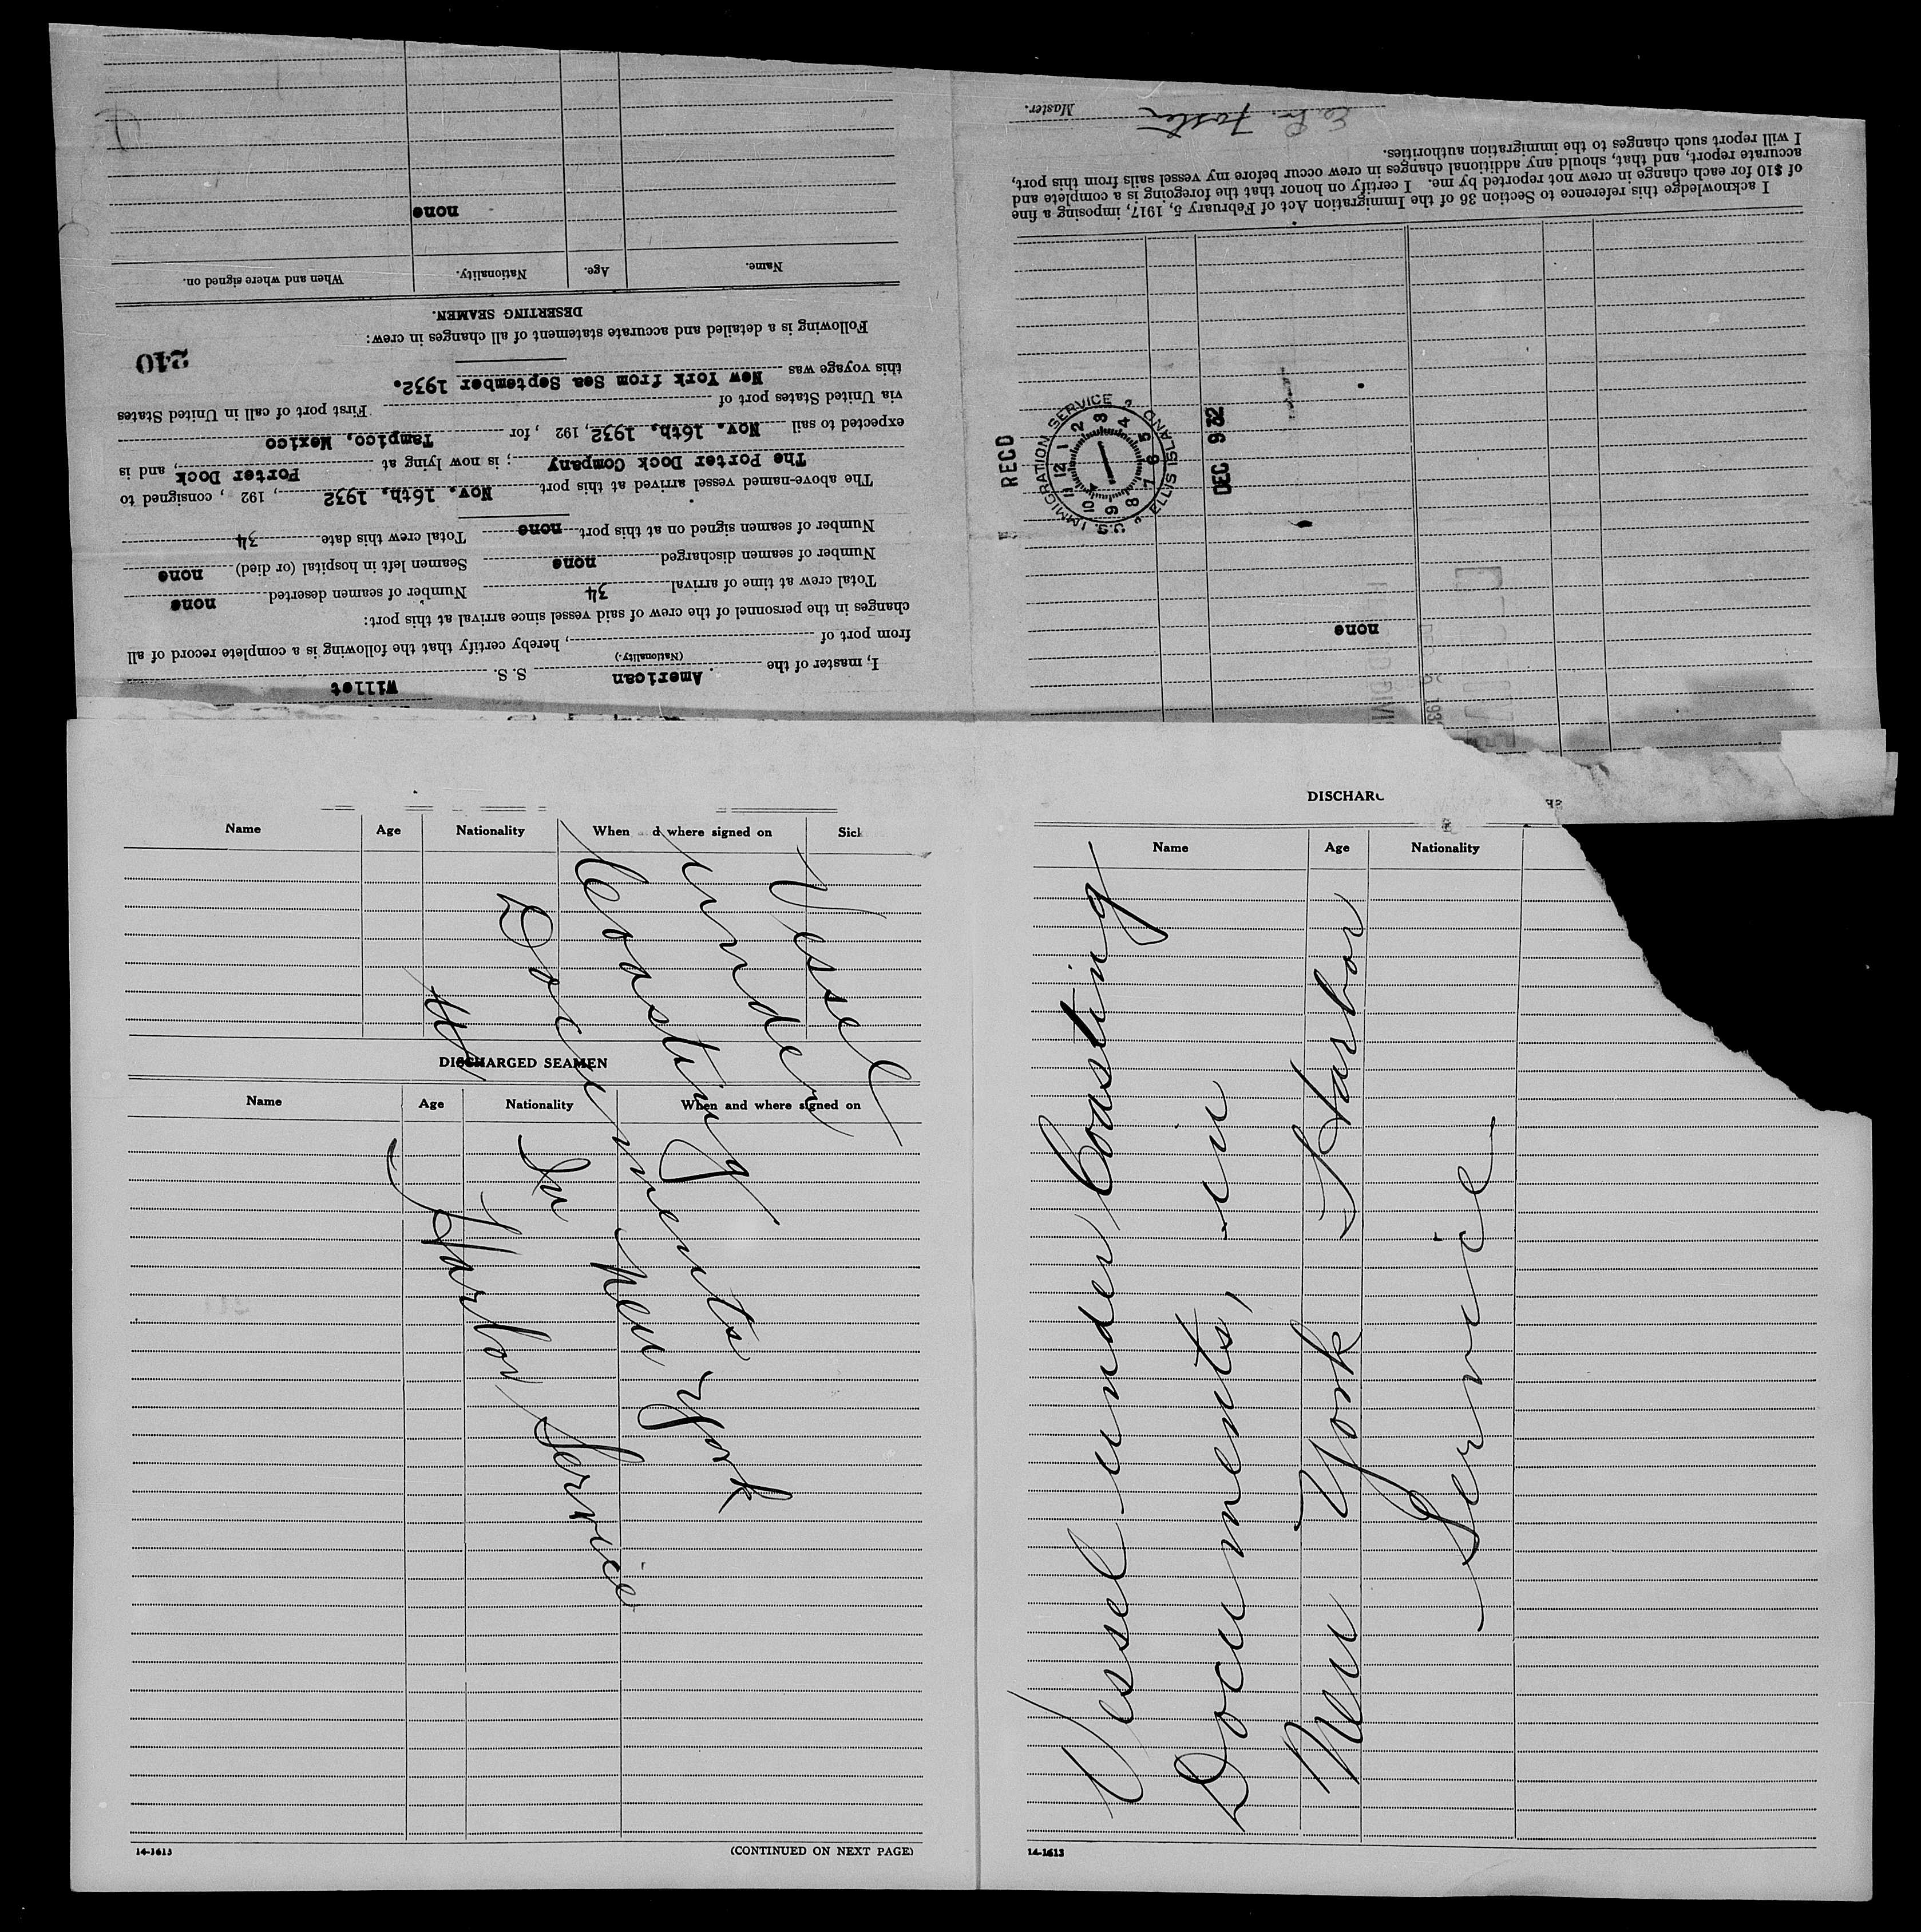 Willet
I, master of the American S. S.
(Nationality.)
from port of , hereby certify that the following is a complete record of all
changes in the personnel of the crew of said vessel since arrival at this port:
Total crew at time of arrival 34 Number of seamen deserted none
Number of seamen discharged none Seamen left in hospital (or died) none
Number of seamen signed on at this port none Total crew this date 34
The above-named vessel arrived at this port Nov. 16th, 1932, 192 , consigned to
The Porter Dock Company ; is now lying at Porter Dock , and is
expected to sail Nov. 16th, 1932, 192 , for Tampico, Mexico
via United States port of First port of call in United States
this voyage was New York from Sea September 1932.
240
Following is a detailed and accurate statement of all changes in crew:
DESERTING SEAMEN.
Name. Age. Nationality. When and where signed on.
none
none
I acknowledge this reference to Section 36 of the Immigration Act of February 5, 1917, imposing a fine
of $10 for each change in crew not reported by me. I certify on honor that the foregoing is a complete and
accurate report, and that, should any additional changes in crew occur before my vessel sails from this port,
I will report such changes to the immigration authorities.
Foster Master.
RECD
U.S. IMMIGRATION SERVICE ELLIS ISLAND
12 1 2 3 4 5 6 7 8 9 10 11
DEC 9 32
Name Age Nationality When d where signed on Sick
DISCHARGED SEAMEN
Name Age Nationality When and where signed on
Vessel
under
Coasting
Documents
In New York
Harbor Service
14-1613 (CONTINUED ON NEXT PAGE)
DISCHARG
Name Age Nationality
Vessel under Coasting
Documents, in
New York Harbor
Service
14-1613